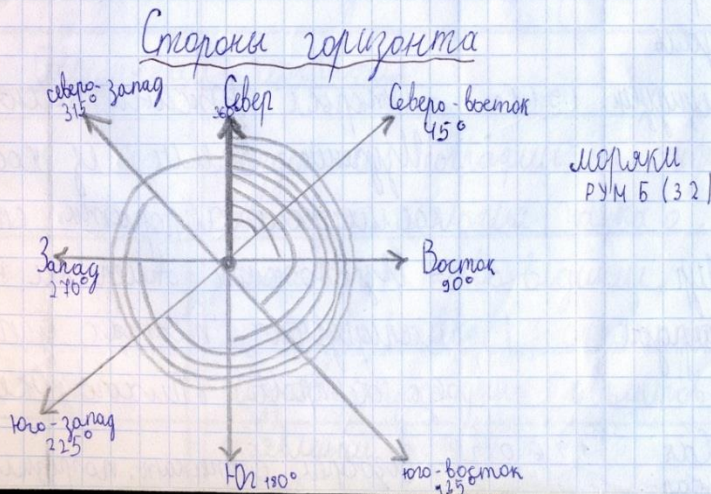 Стороны горизонта
северо-запад
315°
Север
Северо-восток
45°
моряки
РУМБ (32)
Запад
270°
Восток
90°
Юго-запад
225°
Юг 180°
юго-восток